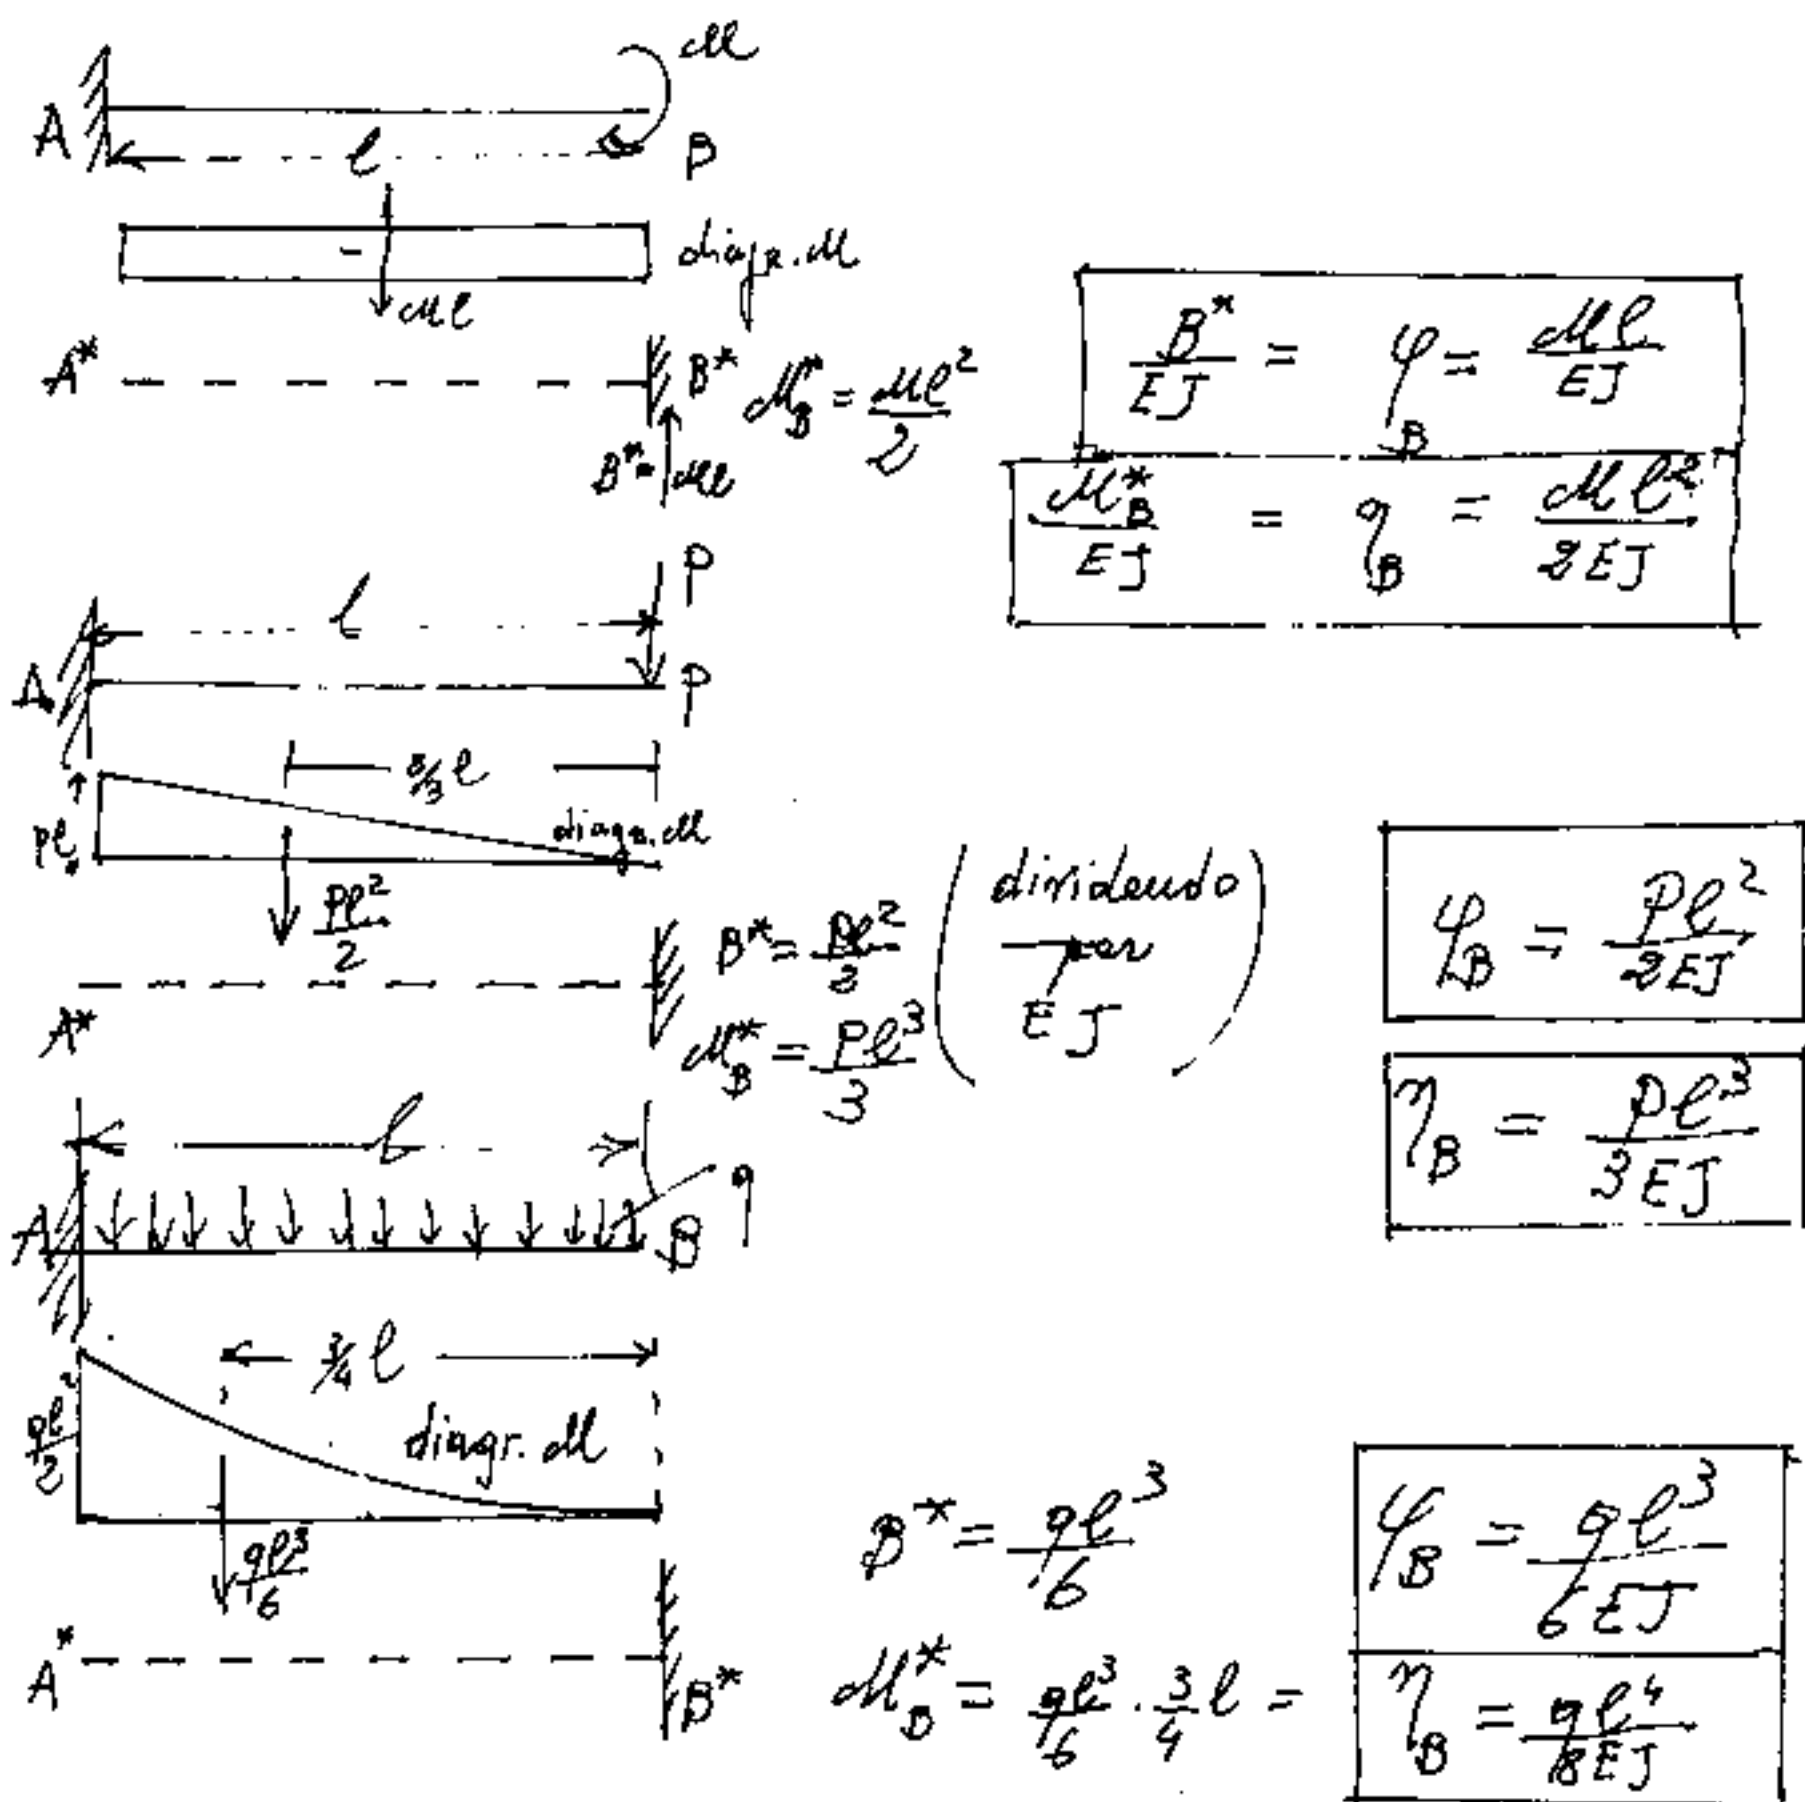 M
A l B
- diagr. M
Ml
A* B* M*B = Ml²/2
B* = Ml
B*/EJ = φB = Ml/EJ
M*B/EJ = ηB = Ml²/2EJ
P
l
A P
2/3 l
Pl diagr. M
Pl²/2
B* = Pl²/2 (dividendo per EJ)
A* M*B = Pl³/3
φB = Pl²/2EJ
ηB = Pl³/3EJ
l
q
A B
3/4 l
ql²/2 diagr. M
ql³/6
B* = ql³/6
φB = ql³/6EJ
A* B* M*B = ql³/6 · 3/4 l =
ηB = ql⁴/8EJ